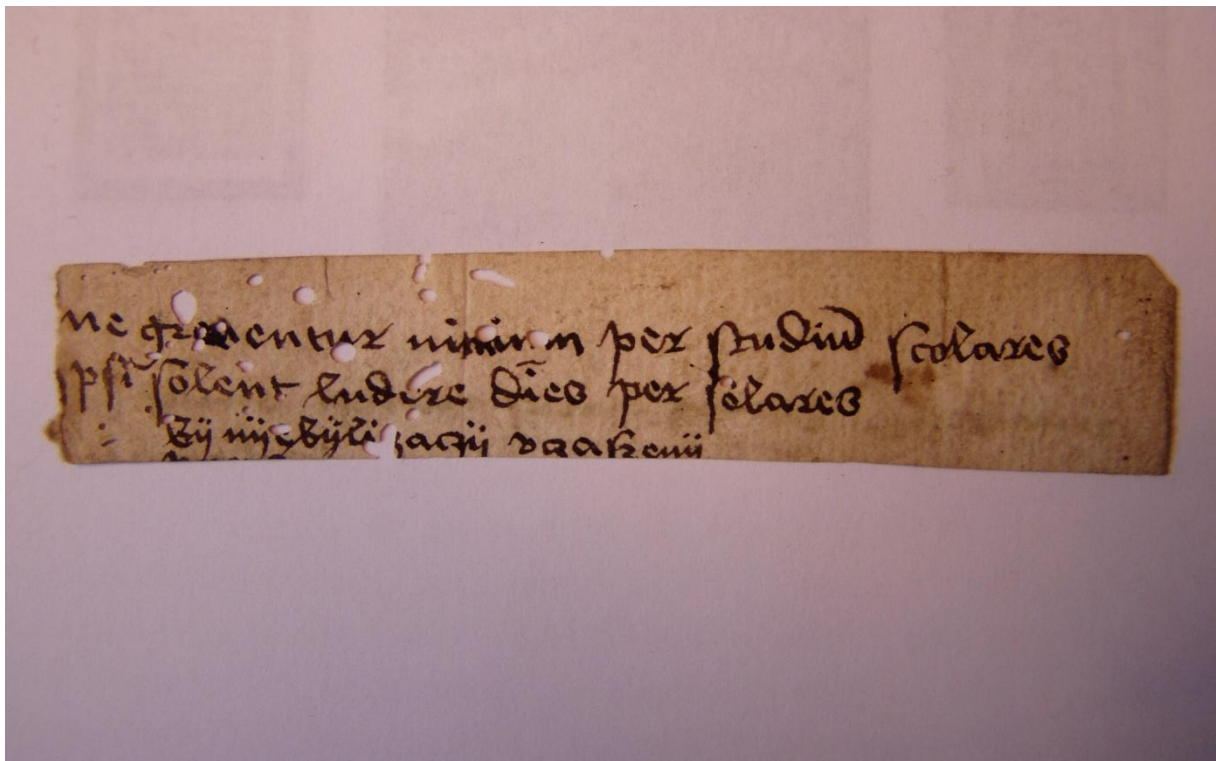 ne graventur nimium per studiū scolares
ipsi solent ludere dies per solares
by nÿe byli zaczÿ vczakenÿ